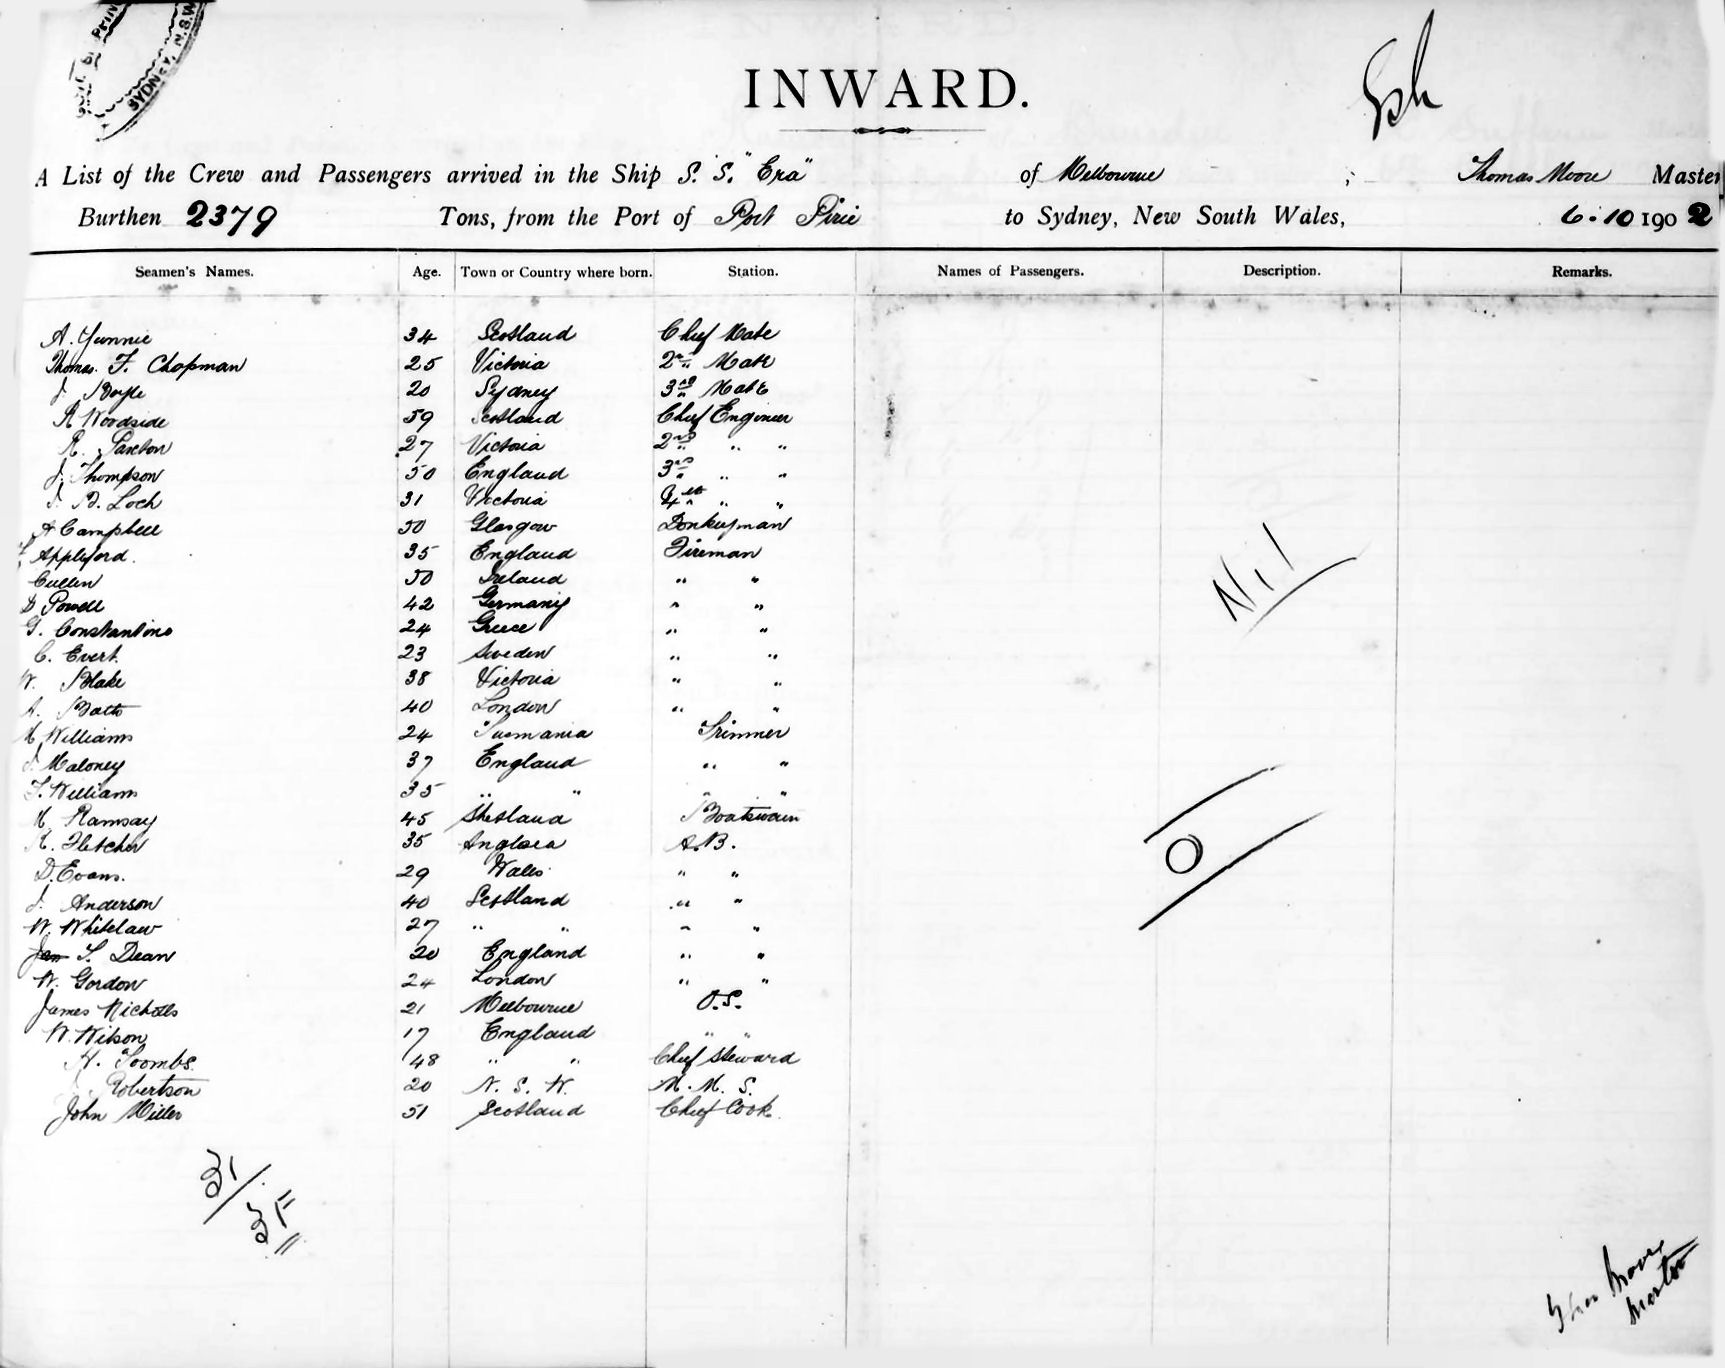 SYDNEY, N.S.W.
INWARD.
A List of the Crew and Passengers arrived in the Ship S.S. "Era" of Melbourne ; Thomas Moore Master
Burthen 2379 Tons, from the Port of Port Pirie to Sydney, New South Wales, 6.10 1902
Seamen's Names. Age. Town or Country where born. Station. Names of Passengers. Description. Remarks.
A. Yunnie 34 Scotland Chief Mate
Thomas. F. Chapman 25 Victoria 2nd Mate
J. Boyle 20 Sydney 3rd Mate
R Woodside 59 Scotland Chief Engineer
R. Paxton 27 Victoria 2nd " "
J. Thompson 50 England 3rd " "
J. B. Loch 31 Victoria 4th " "
A Campbell 50 Glasgow Donkeyman
Appleford. 35 England Fireman
Cullen 50 Ireland " "
D Powell 42 Germany " "
G. Constantino 24 Greece " "
C. Evert. 23 Sweden " "
W. Blake 38 Victoria " "
A. Batts 40 London " "
M Williams 24 Tasmania Trimmer
J. Maloney 37 England " "
T. Williams 35 " " " "
M Ramsay 45 Shetland Boatswain
R. Fletcher 35 Anglsea A.B.
D. Evans. 29 Wales " "
J. Anderson 40 Scotland " "
W. Whitelaw 27 " " " "
T. Dean 20 England " "
W. Gordon 24 London " "
James Nicholls 21 Melbourne O.S.
W. Wilson 17 England " "
H. Toombs. 48 " " Chief Steward
Robertson 20 N. S. W. M. M. S.
John Miller 51 Scotland Chief Cook
Nil
0
31
3F
Thos Moore
Master